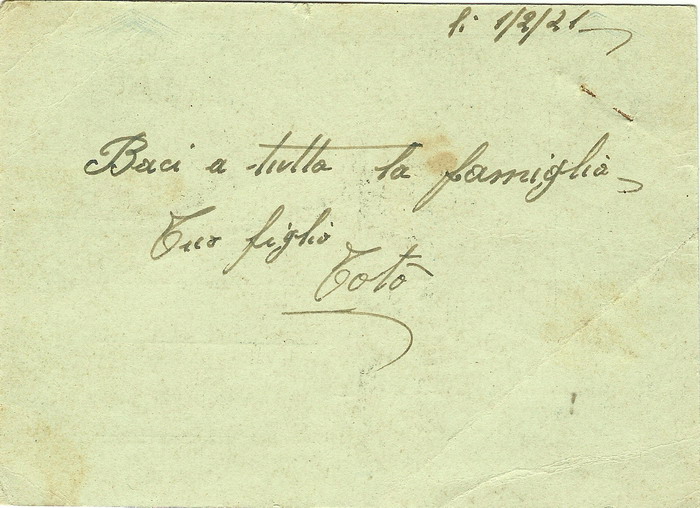 li 1/2/21
Baci a tutta la famiglia
Tuo figlio
Totò